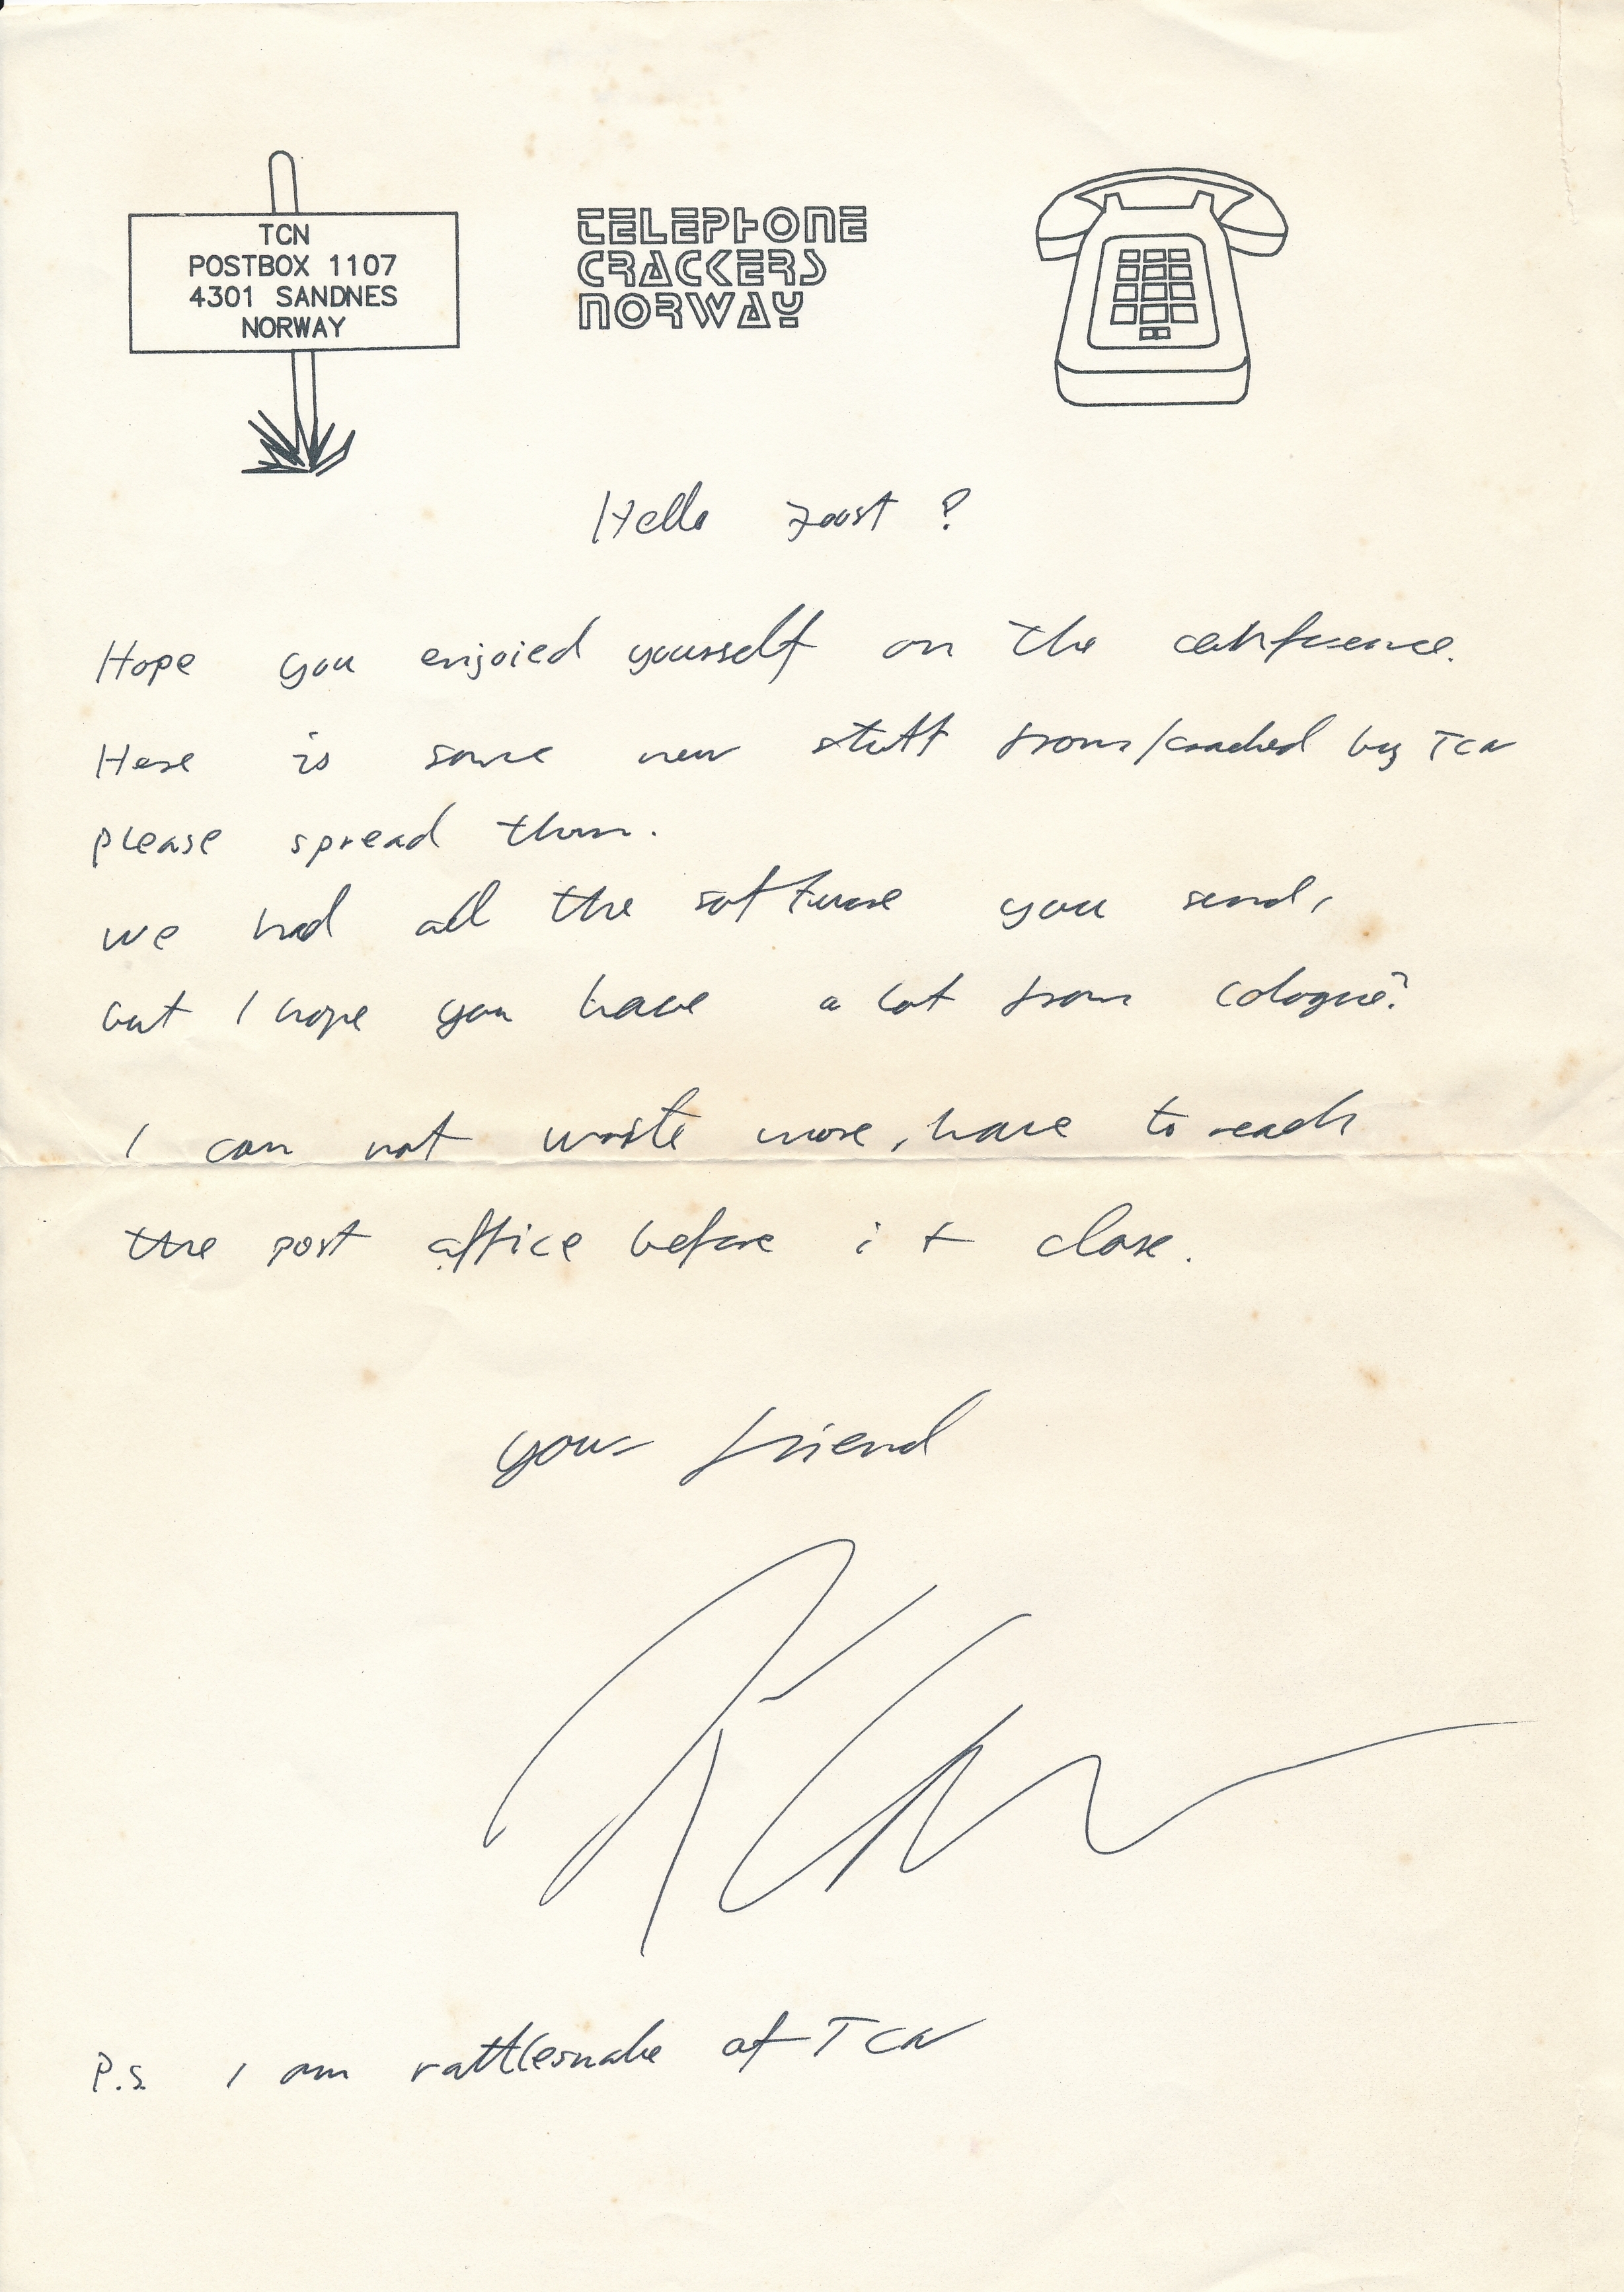 TCN
POSTBOX 1107
4301 SANDNES
NORWAY
TELEPHONE
CRACKERS
NORWAY
Hello Joost ?
Hope you enjoied yourself on the conference.
Here is some new stuff from/cracked by TCN
please spread them.
we had all the software you send,
but I hope you have a lot from cologne?
I can not waste more, have to reach
the post office before it close.
your friend
P.S. I am rattlesnake of TCN